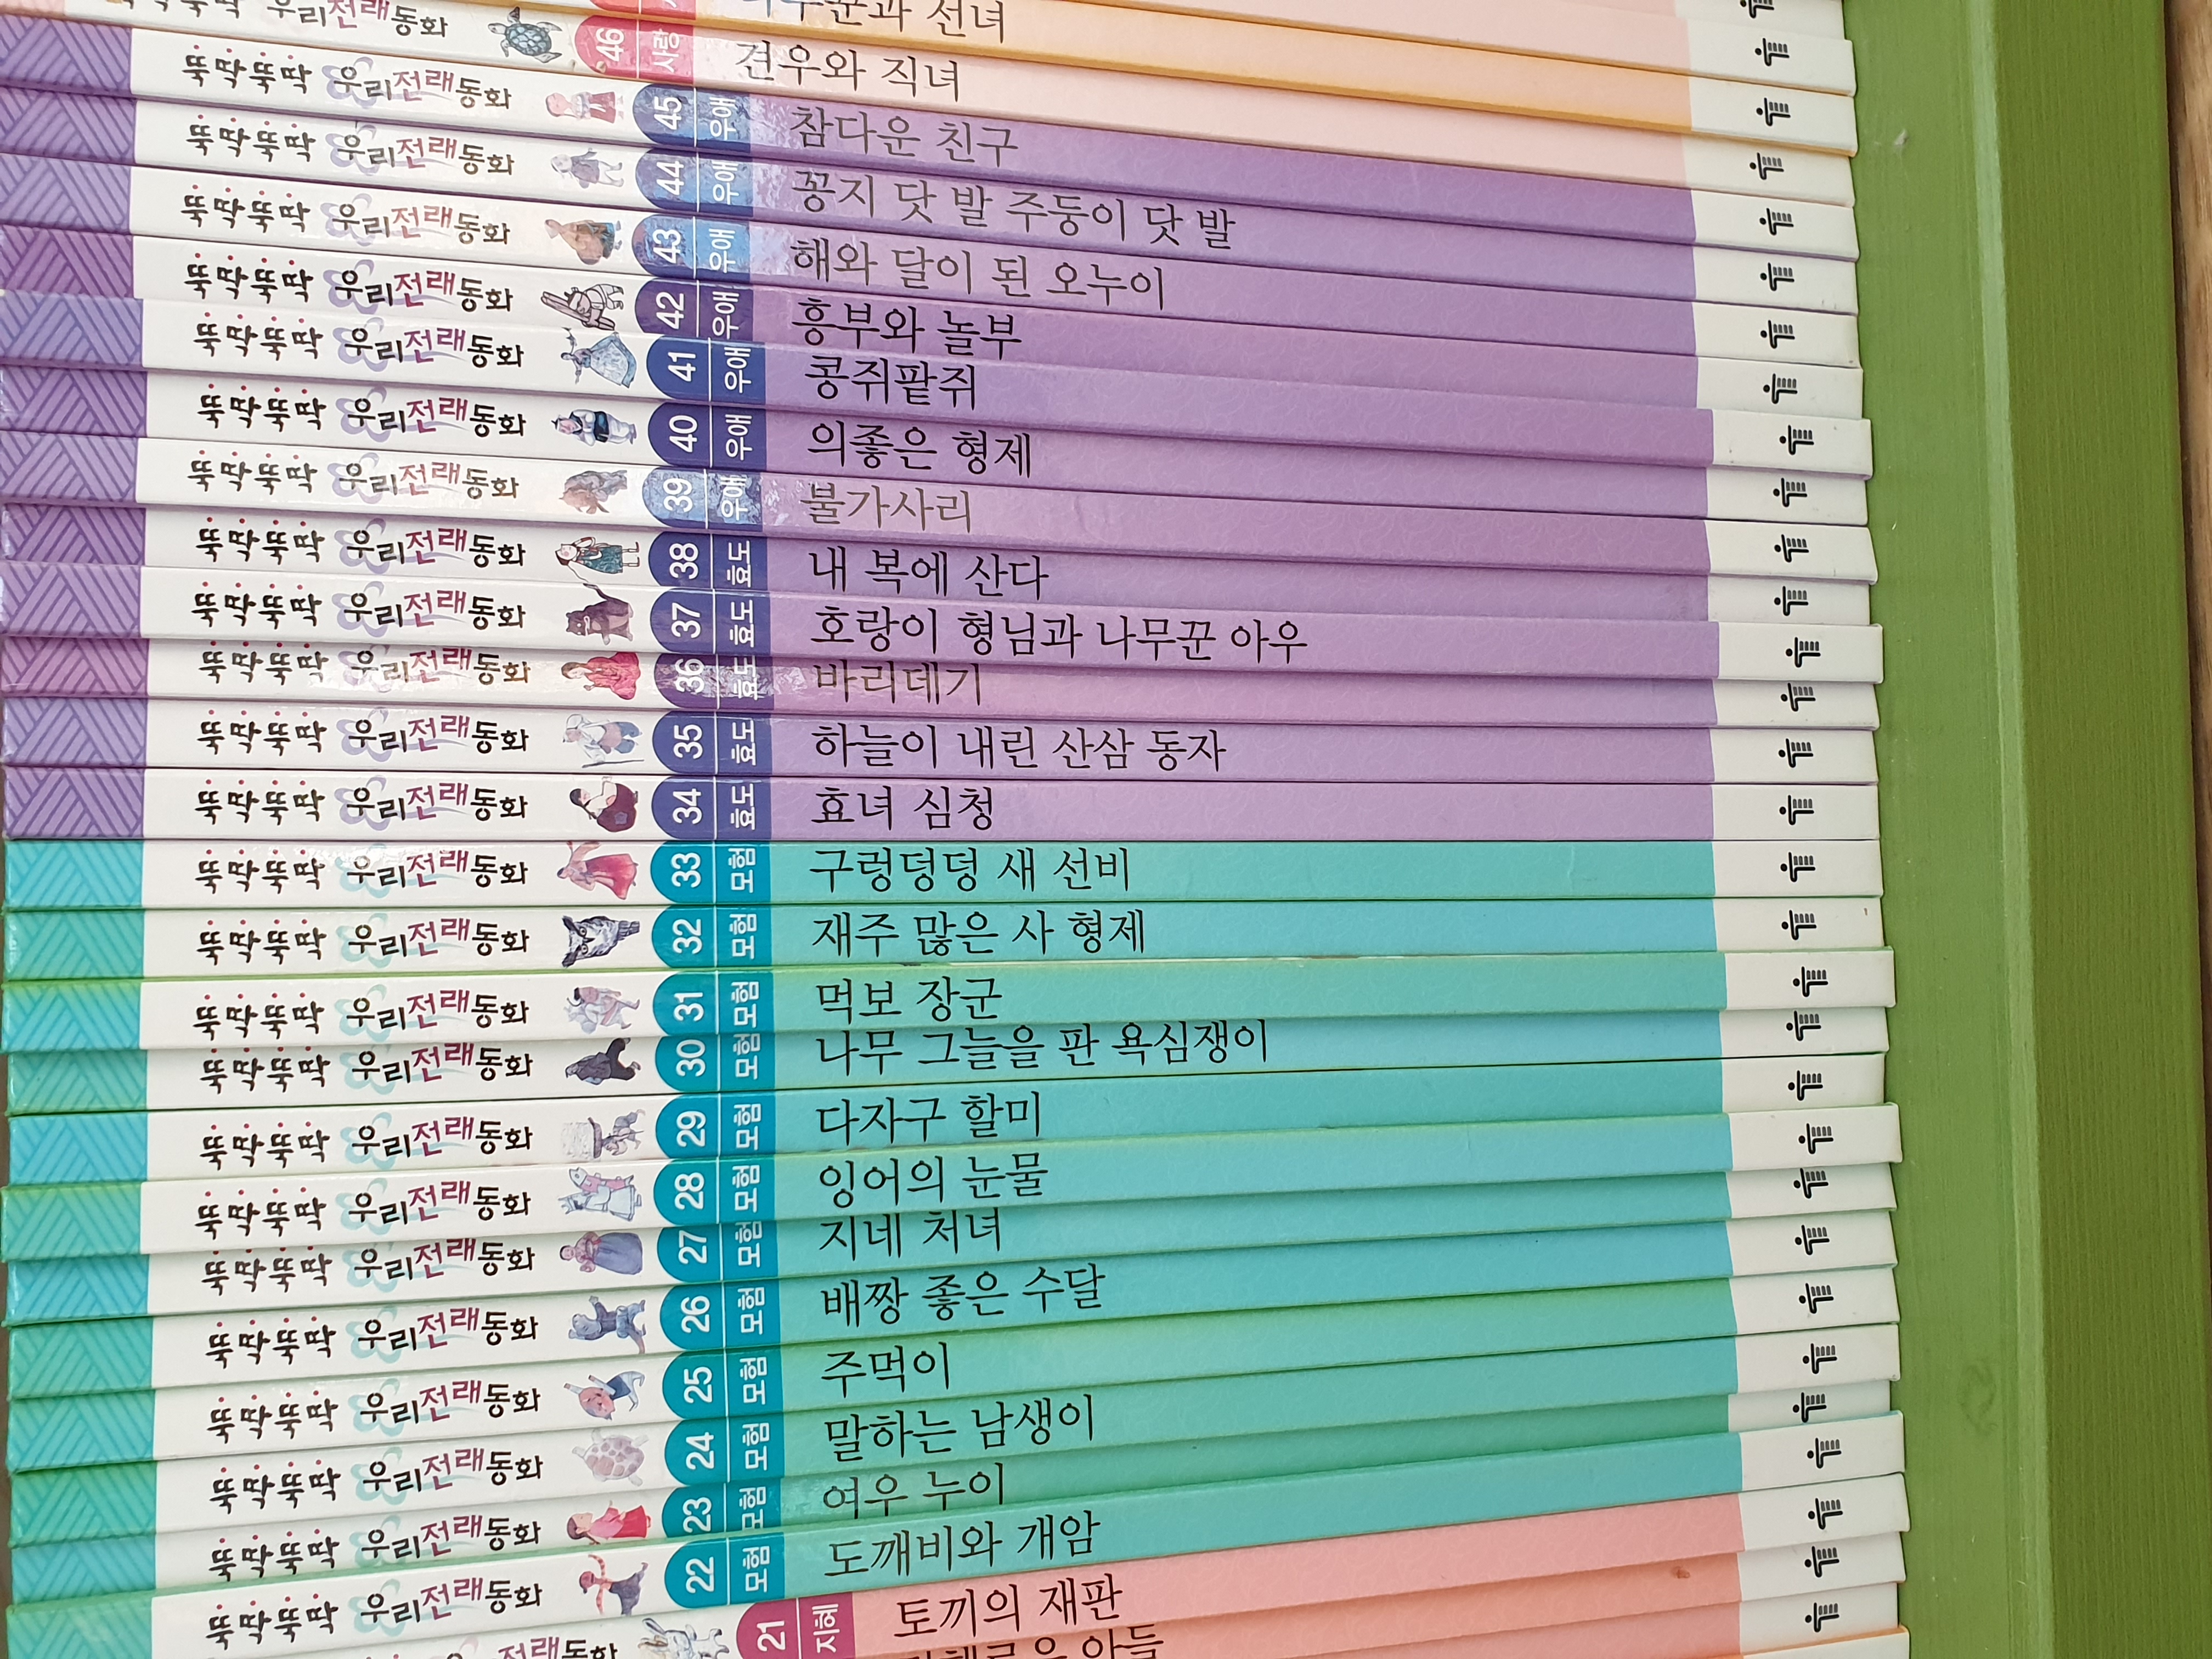 우리전래동화 선녀
뚝딱뚝딱 우리전래동화 46 사랑 견우와 직녀
뚝딱뚝딱 우리전래동화 45 우애 참다운 친구
뚝딱뚝딱 우리전래동화 44 우애 꽁지 닷 발 주둥이 닷 발
뚝딱뚝딱 우리전래동화 43 우애 해와 달이 된 오누이
뚝딱뚝딱 우리전래동화 42 우애 흥부와 놀부
뚝딱뚝딱 우리전래동화 41 우애 콩쥐팥쥐
뚝딱뚝딱 우리전래동화 40 우애 의좋은 형제
뚝딱뚝딱 우리전래동화 39 우애 불가사리
뚝딱뚝딱 우리전래동화 38 효도 내 복에 산다
뚝딱뚝딱 우리전래동화 37 효도 호랑이 형님과 나무꾼 아우
뚝딱뚝딱 우리전래동화 36 효도 바리데기
뚝딱뚝딱 우리전래동화 35 효도 하늘이 내린 산삼 동자
뚝딱뚝딱 우리전래동화 34 효도 효녀 심청
뚝딱뚝딱 우리전래동화 33 모험 구렁덩덩 새 선비
뚝딱뚝딱 우리전래동화 32 모험 재주 많은 사 형제
뚝딱뚝딱 우리전래동화 31 모험 먹보 장군
뚝딱뚝딱 우리전래동화 30 모험 나무 그늘을 판 욕심쟁이
뚝딱뚝딱 우리전래동화 29 모험 다자구 할미
뚝딱뚝딱 우리전래동화 28 모험 잉어의 눈물
뚝딱뚝딱 우리전래동화 27 모험 지네 처녀
뚝딱뚝딱 우리전래동화 26 모험 배짱 좋은 수달
뚝딱뚝딱 우리전래동화 25 모험 주먹이
뚝딱뚝딱 우리전래동화 24 모험 말하는 남생이
뚝딱뚝딱 우리전래동화 23 모험 여우 누이
뚝딱뚝딱 우리전래동화 22 모험 도깨비와 개암
전래동화 21 지혜 토끼의 재판
아들